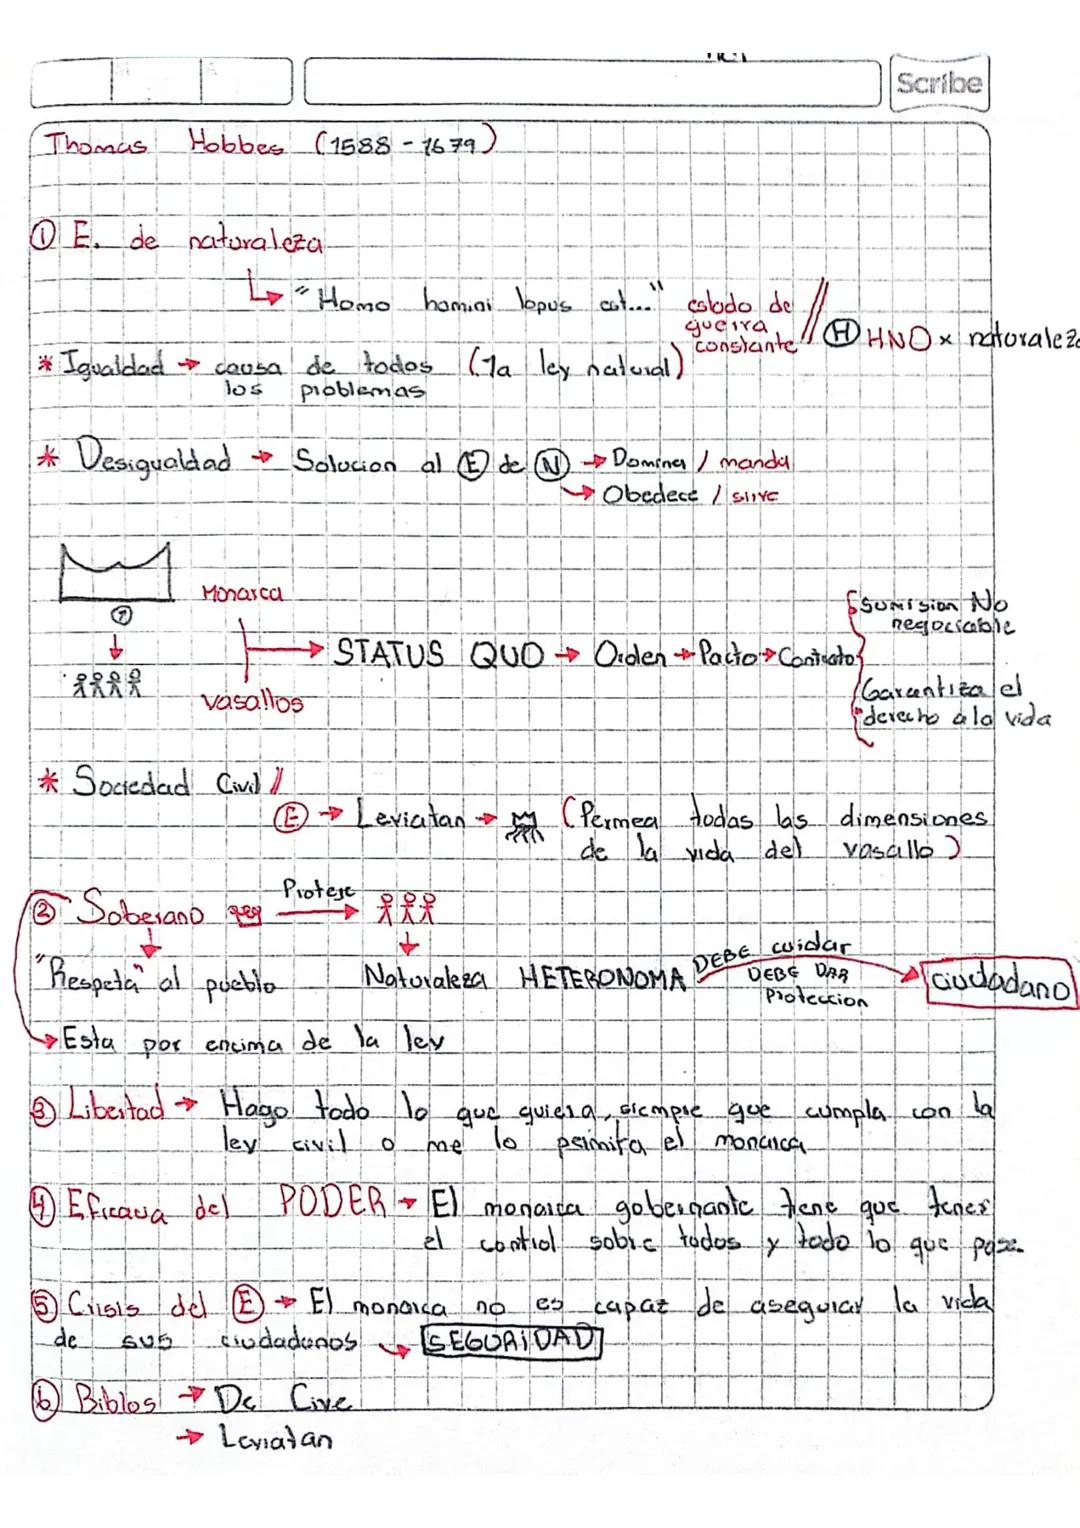 Scribe
Thomas Hobbes (1588 - 1679)
① E. de naturaleza
"Homo homini lopus est..." estado de guerra constante // Ⓗ HNO x naturaleza
* Igualdad → causa de todos (1a ley natural)
los problemas
* Desigualdad → Solucion al Ⓔ de Ⓝ → Domina / manda
→ Obedece / sirve
Monarca
→ STATUS QUO → Orden → Pacto → Contrato
vasallos
Sumision No
negociable
Garantiza el
derecho a la vida
* Sociedad Civil //
Ⓔ → Leviatan → (Permea todas las dimensiones
de la vida del vasallo)
② Soberano Protege →
"Respeta" al pueblo
Naturaleza HETERONOMA DEBE cuidar
DEBE DAR
Proteccion
ciudadano
→ Esta por encima de la ley
③ Libertad → Hago todo lo que quiera, siempre que cumpla con la
ley civil o me lo permita el monarca
④ Eficacia del PODER → El monarca gobernante tiene que tener
el control sobre todos y todo lo que pasa.
⑤ Crisis del Ⓔ → El monarca no es capaz de asegurar la vida
de sus ciudadanos → SEGURIDAD
⑥ Biblos → De Cive
→ Leviatan